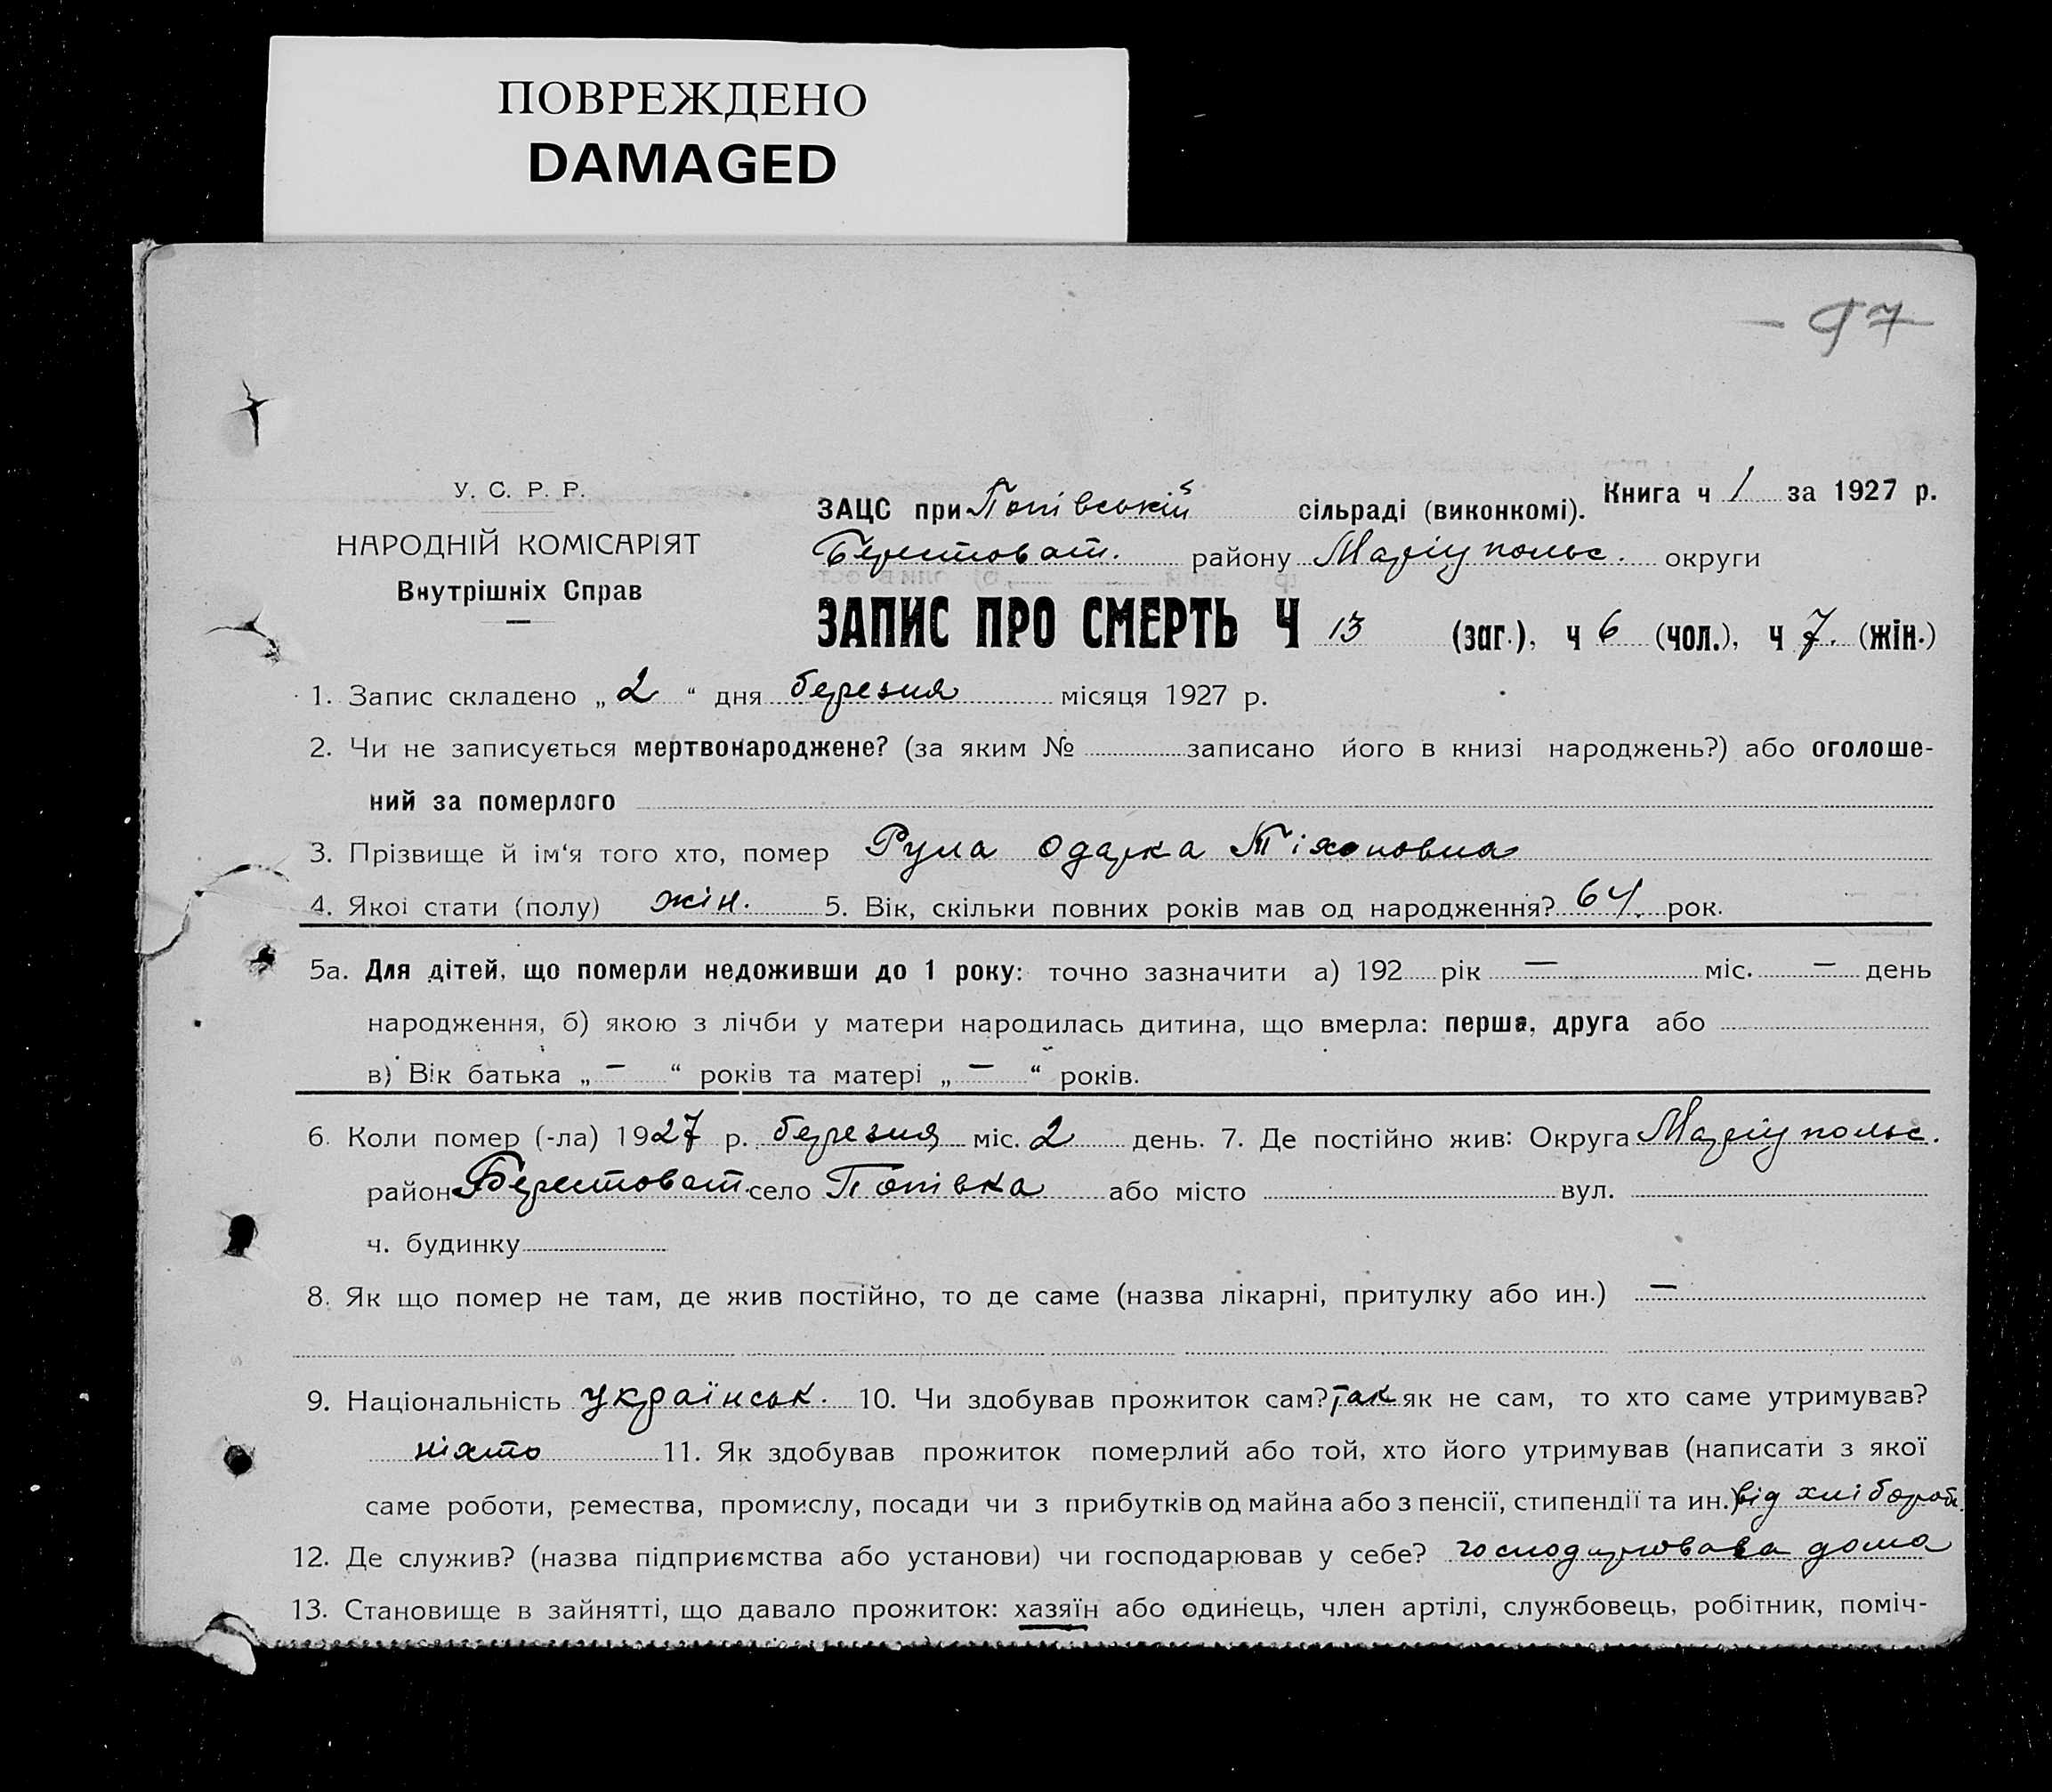 ПОВРЕЖДЕНО
DAMAGED
97
У. С. Р. Р.
НАРОДНІЙ КОМІСАРІЯТ
Внутрішніх Справ
Книга ч 1 за 1927 р.
ЗАЦС при Попівській сільраді (виконкомі).
Берестоват. району Маріупольс. округи
ЗАПИС ПРО СМЕРТЬ Ч 13 (заг.), ч 6 (чол.), ч 7. (жін.)
1. Запис складено „ 2 “ дня березня місяця 1927 р.
2. Чи не записується мертвонароджене? (за яким № записано його в книзі народжень?) або оголоше-
ний за померлого
3. Прізвище й ім‘я того хто, помер Рула Одарка Тіхоновна
4. Якої стати (полу) жін. 5. Вік, скільки повних років мав од народження? 64. рок.
5а. Для дітей, що померли недоживши до 1 року: точно зазначити а) 192 рік — міс. — день
народження, б) якою з лічби у матери народилась дитина, що вмерла: перша, друга або
в) Вік батька „ — “ років та матері „ — “ років.
6. Коли помер (-ла) 1927 р. березня міс. 2 день. 7. Де постійно жив: Округа Маріупольс.
район Берестоват. село Попівка або місто вул.
ч. будинку
8. Як що помер не там, де жив постійно, то де саме (назва лікарні, притулку або ин.) —
9. Національність українськ. 10. Чи здобував прожиток сам? так як не сам, то хто саме утримував?
ніхто 11. Як здобував прожиток померлий або той, хто його утримував (написати з якої
саме роботи, ремества, промислу, посади чи з прибутків од майна або з пенсії, стипендії та ин.) від хлібороб.
12. Де служив? (назва підприємства або установи) чи господарював у себе? господарювала дома
13. Становище в зайнятті, що давало прожиток: хазяїн або одинець, член артілі, службовець, робітник, поміч-